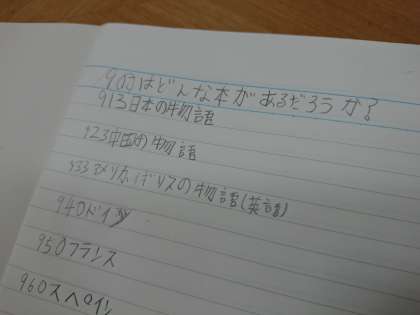 900はどんな本があるだろうか?
913日本の物語
923中国の物語
933アメリカ、イギリスの物語(英語)
940ドイツ
950フランス
960スペイン